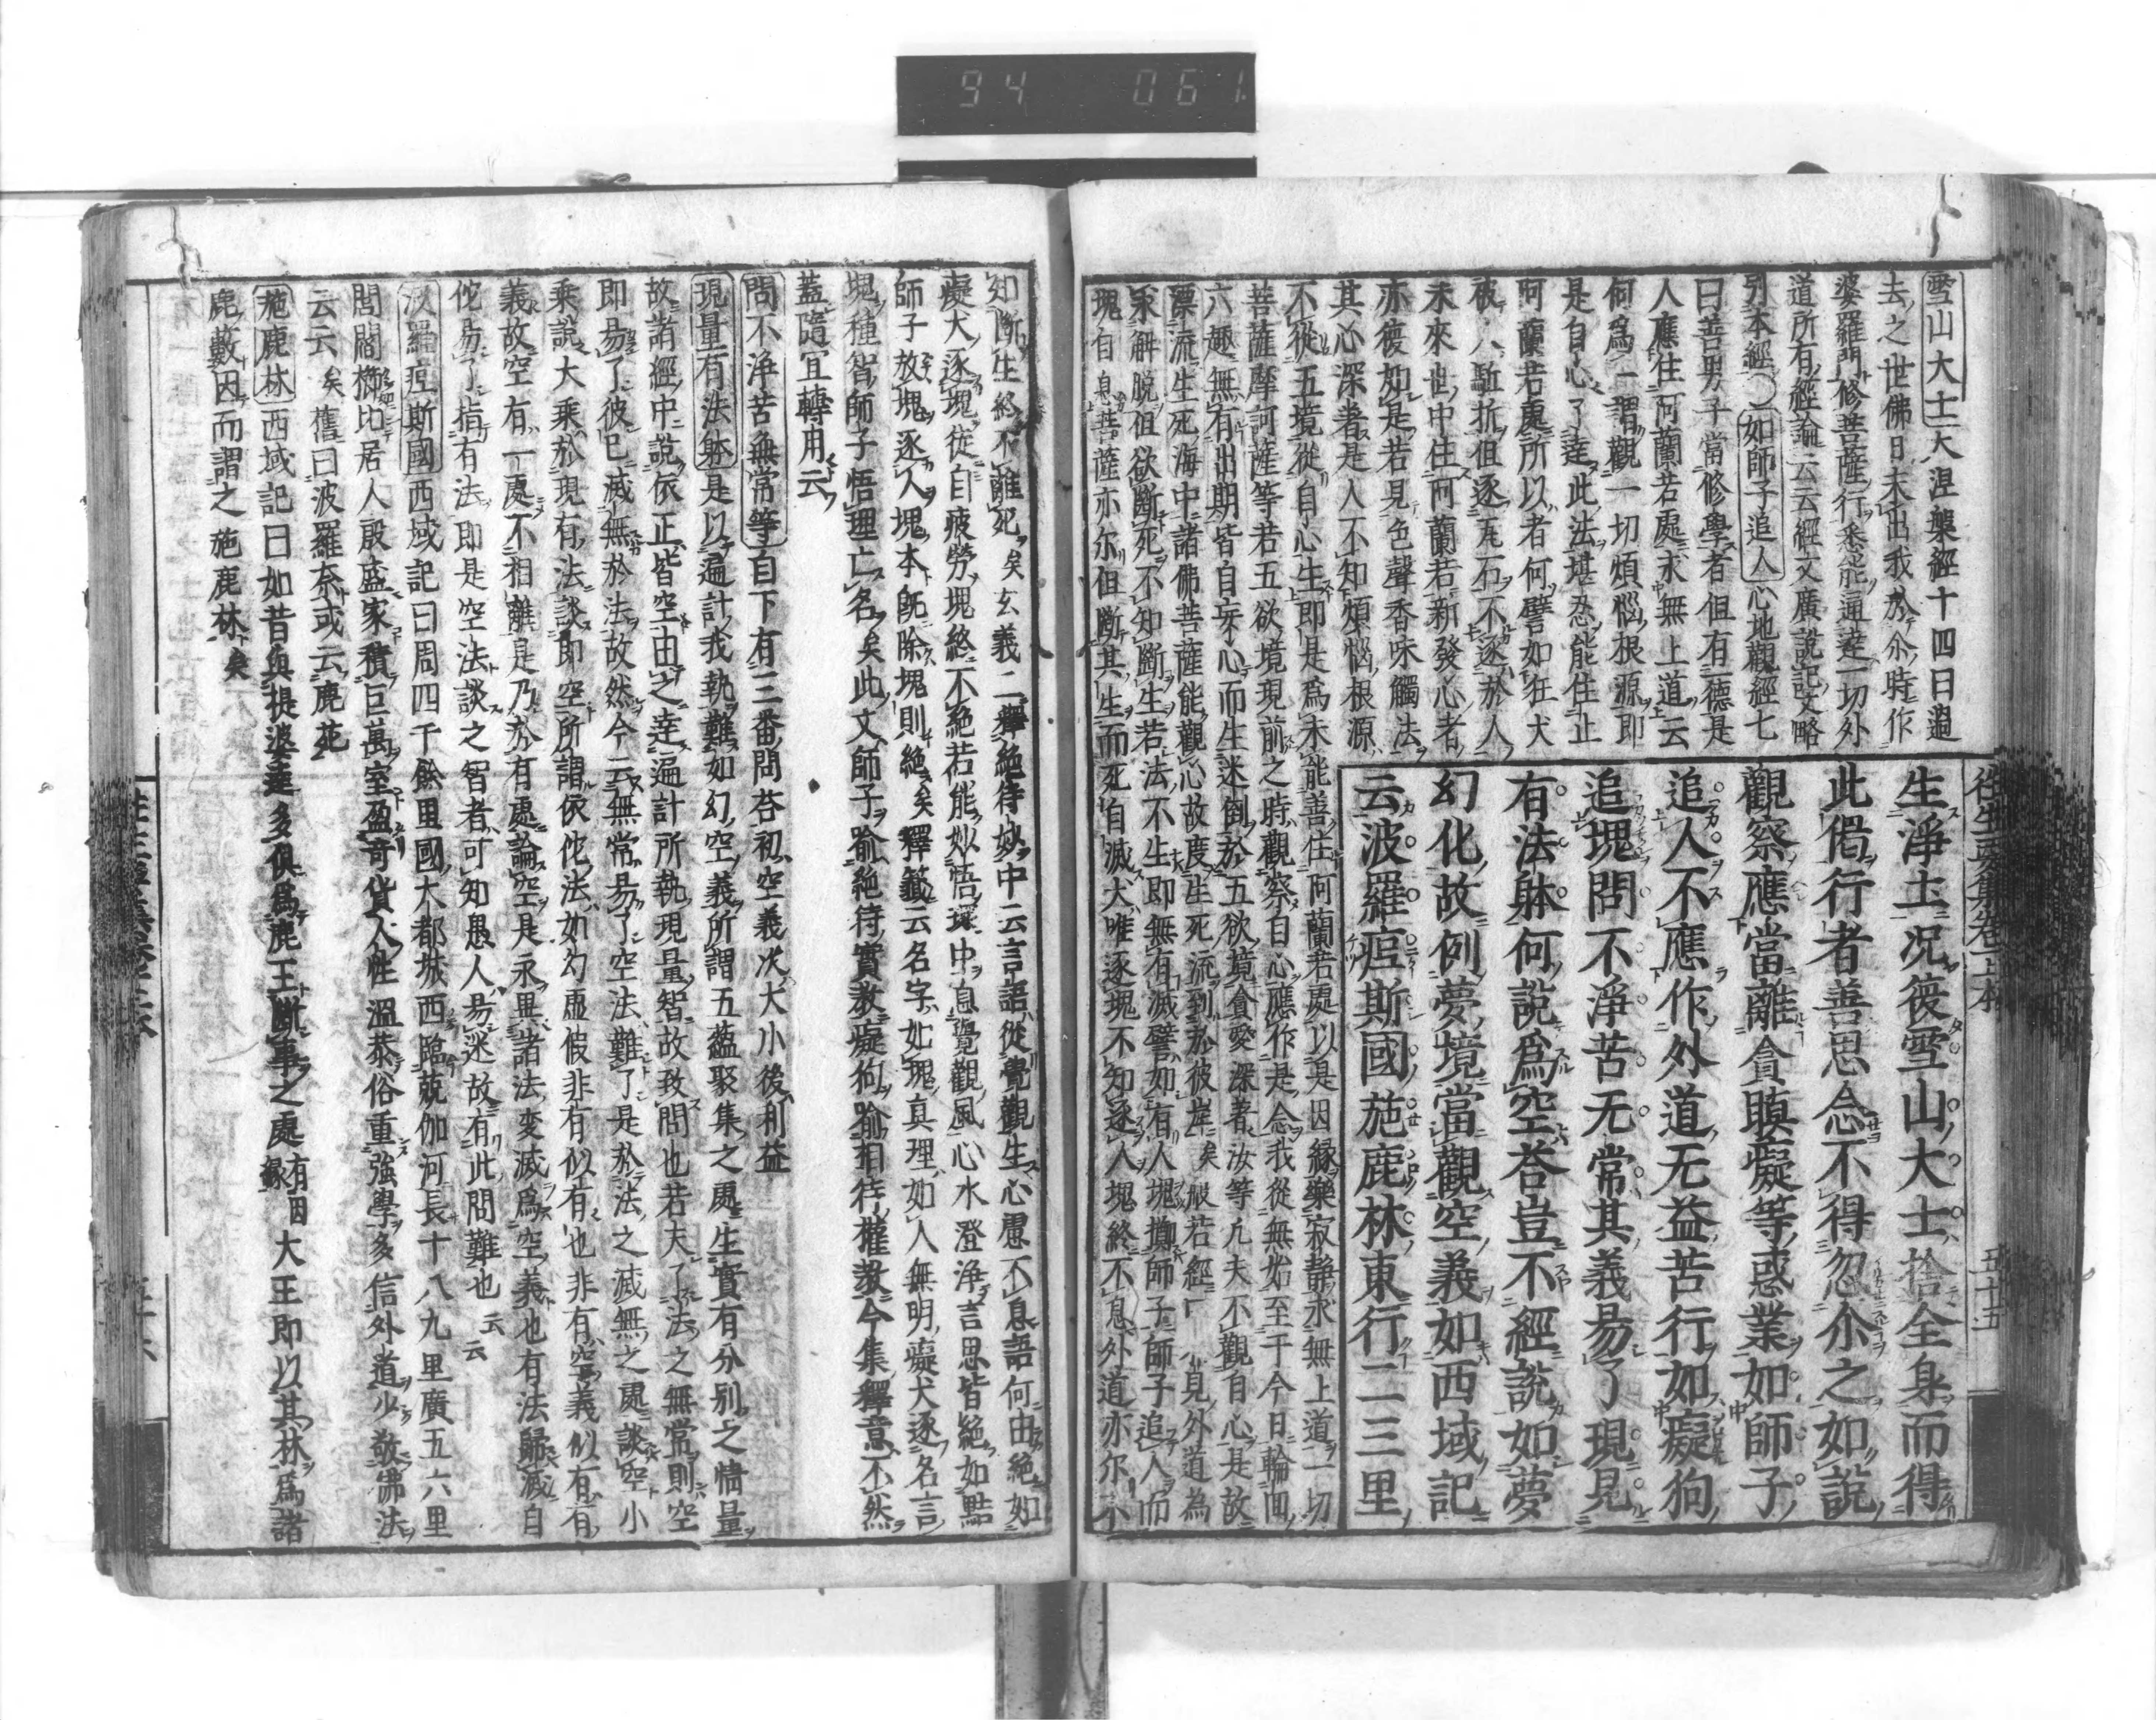 94 061
往生要集卷上本
五十五
生淨土况復雪山大士捨全身而得
此偈行者善思念不得忽尒之如說
觀察應當離貪瞋癡等惑業如師子
追人不應作外道无益苦行如癡狗
追塊問不淨苦无常其義易了現見
有法躰何說爲空荅豈不經說如夢
幻化故例夢境當觀空義如西域記
云波羅痆斯國施鹿林東行二三里
雪山大士大涅槃經十四曰過
去之世佛日未出我於尒時作
婆羅門修菩薩行悉能通達一切外
道所有經論云云經文廣說記文略
別本經
如師子追人心地觀經七
曰善男子當修學者但有一德是
人應住阿蘭若處求無上道云
何爲一謂觀一切煩惱根源即
是自心了達此法堪忍能住止
阿蘭若處所以者何譬如狂犬
被人駈折但逐瓦石不逐於人
未來世中住阿蘭若新發心者
亦復如是若見色聲香味觸法
其心深著是人不知煩惱根源
不從五境從自心生即是爲未能善住阿蘭若處以是因緣樂寂靜求無上道一切
菩薩摩訶薩等若五欲境現前之時觀察自心應作是念我從無始至于今日輪回
六趣無有出期皆自妄心而生迷倒於五欲境貪愛深著汝等凡夫不觀自心是故
漂流生死海中諸佛菩薩能觀心故度生死流到於彼岸矣般若經一見外道為
求解脫但欲斷死不知斷生若法不生即無有滅譬如有人塊擲師子師子追人而
塊自息菩薩亦尔但斷其生而死自滅犬唯逐塊不知逐人塊終不息外道亦尔不
知斷生終不離死矣玄義二釋絕待妙中云言語從覺觀生心慮不息語何由絕如
癡犬逐塊徒自疲勞塊終不絕若能妙悟寰中息覺觀風心水澄淨言思皆絕如點
師子放塊逐人塊本旣除塊則絕矣釋籤云名字如塊真理如人無明癡犬逐名言
塊種智師子悟理亡名矣此文師子喻絕待實教癡狗喻相待權教今集釋意不然
蓋隨宜轉用云
問不淨苦無常等自下有三番問荅初空義次大小後利益
現量有法躰是以遍計我執難如幻空義所謂五蘊聚集之處生實有分別之情量
故諸經中說依正皆空由之達遍計所執現量智故致問也若夫了法之無常則空
即易了彼已滅無於法故然今云無常易了空法難了是於法之滅無之處談空小
乘說大乘於現有法談即空所謂依佗法如幻虛假非有似有也非有空義似有有
義故空有一處不相離是乃於有處論空是永異諸法変滅爲空義也有法歸滅自
佗易了指有法即是空法談之智者可知愚人易迷故有此問難也云云
波羅痆斯國西域記曰周四千餘里國大都城西臨兢伽河長十八九里廣五六里
閭閻櫛比居人殷盛家積巨萬室盈奇貨人性溫恭俗重強學多信外道少敬佛法
云云矣舊曰波羅奈或云鹿苑
施鹿林西域記曰如昔與提婆達多俱爲鹿王斷事之處有因緣大王即以其林爲諸
鹿藪因而謂之施鹿林矣